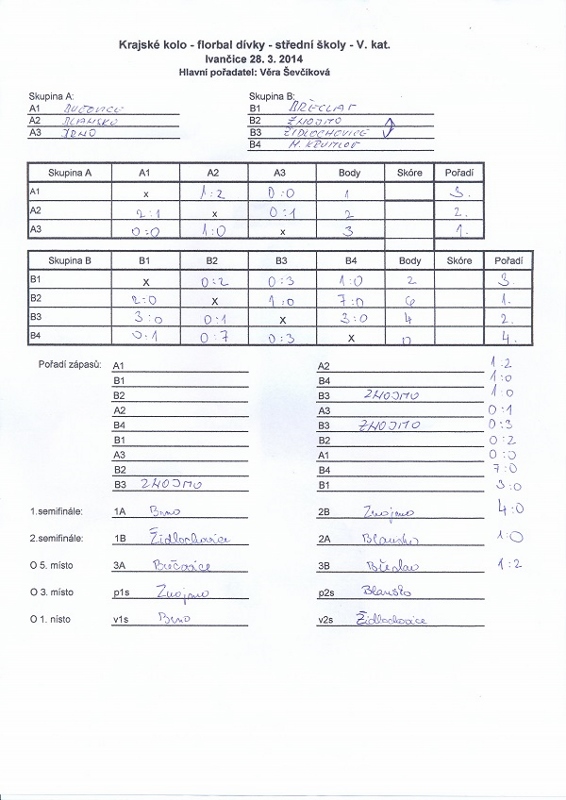 Krajské kolo - florbal dívky - střední školy - V. kat.
Ivančice 28. 3. 2014
Hlavní pořadatel: Věra Ševčíková
Skupina A: Skupina B:
A1 BUČOVICE B1 BŘECLAV
A2 BLANSKO B2 ZNOJMO
A3 BRNO B3 ŽIDLOCHOVICE
B4 M. KRUMLOV
Skupina A A1 A2 A3 Body Skóre Pořadí
A1 x 1:2 0:0 1 3.
A2 2:1 x 0:1 2 2.
A3 0:0 1:0 x 3 1.
Skupina B B1 B2 B3 B4 Body Skóre Pořadí
B1 x 0:2 0:3 1:0 2 3.
B2 2:0 x 1:0 7:0 6 1.
B3 3:0 0:1 x 3:0 4 2.
B4 0:1 0:7 0:3 x 0 4.
Pořadí zápasů: A1 A2 1:2
B1 B4 1:0
B2 B3 ZNOJMO 1:0
A2 A3 0:1
B4 B3 ZNOJMO 0:3
B1 B2 0:2
A3 A1 0:0
B2 B4 7:0
B3 ZNOJMO B1 3:0
1.semifinále: 1A Brno 2B Znojmo 4:0
2.semifinále: 1B Židlochovice 2A Blansko 1:0
O 5. místo 3A Bučovice 3B Břeclav 1:2
O 3. místo p1s Znojmo p2s Blansko
O 1. nísto v1s Brno v2s Židlochovice